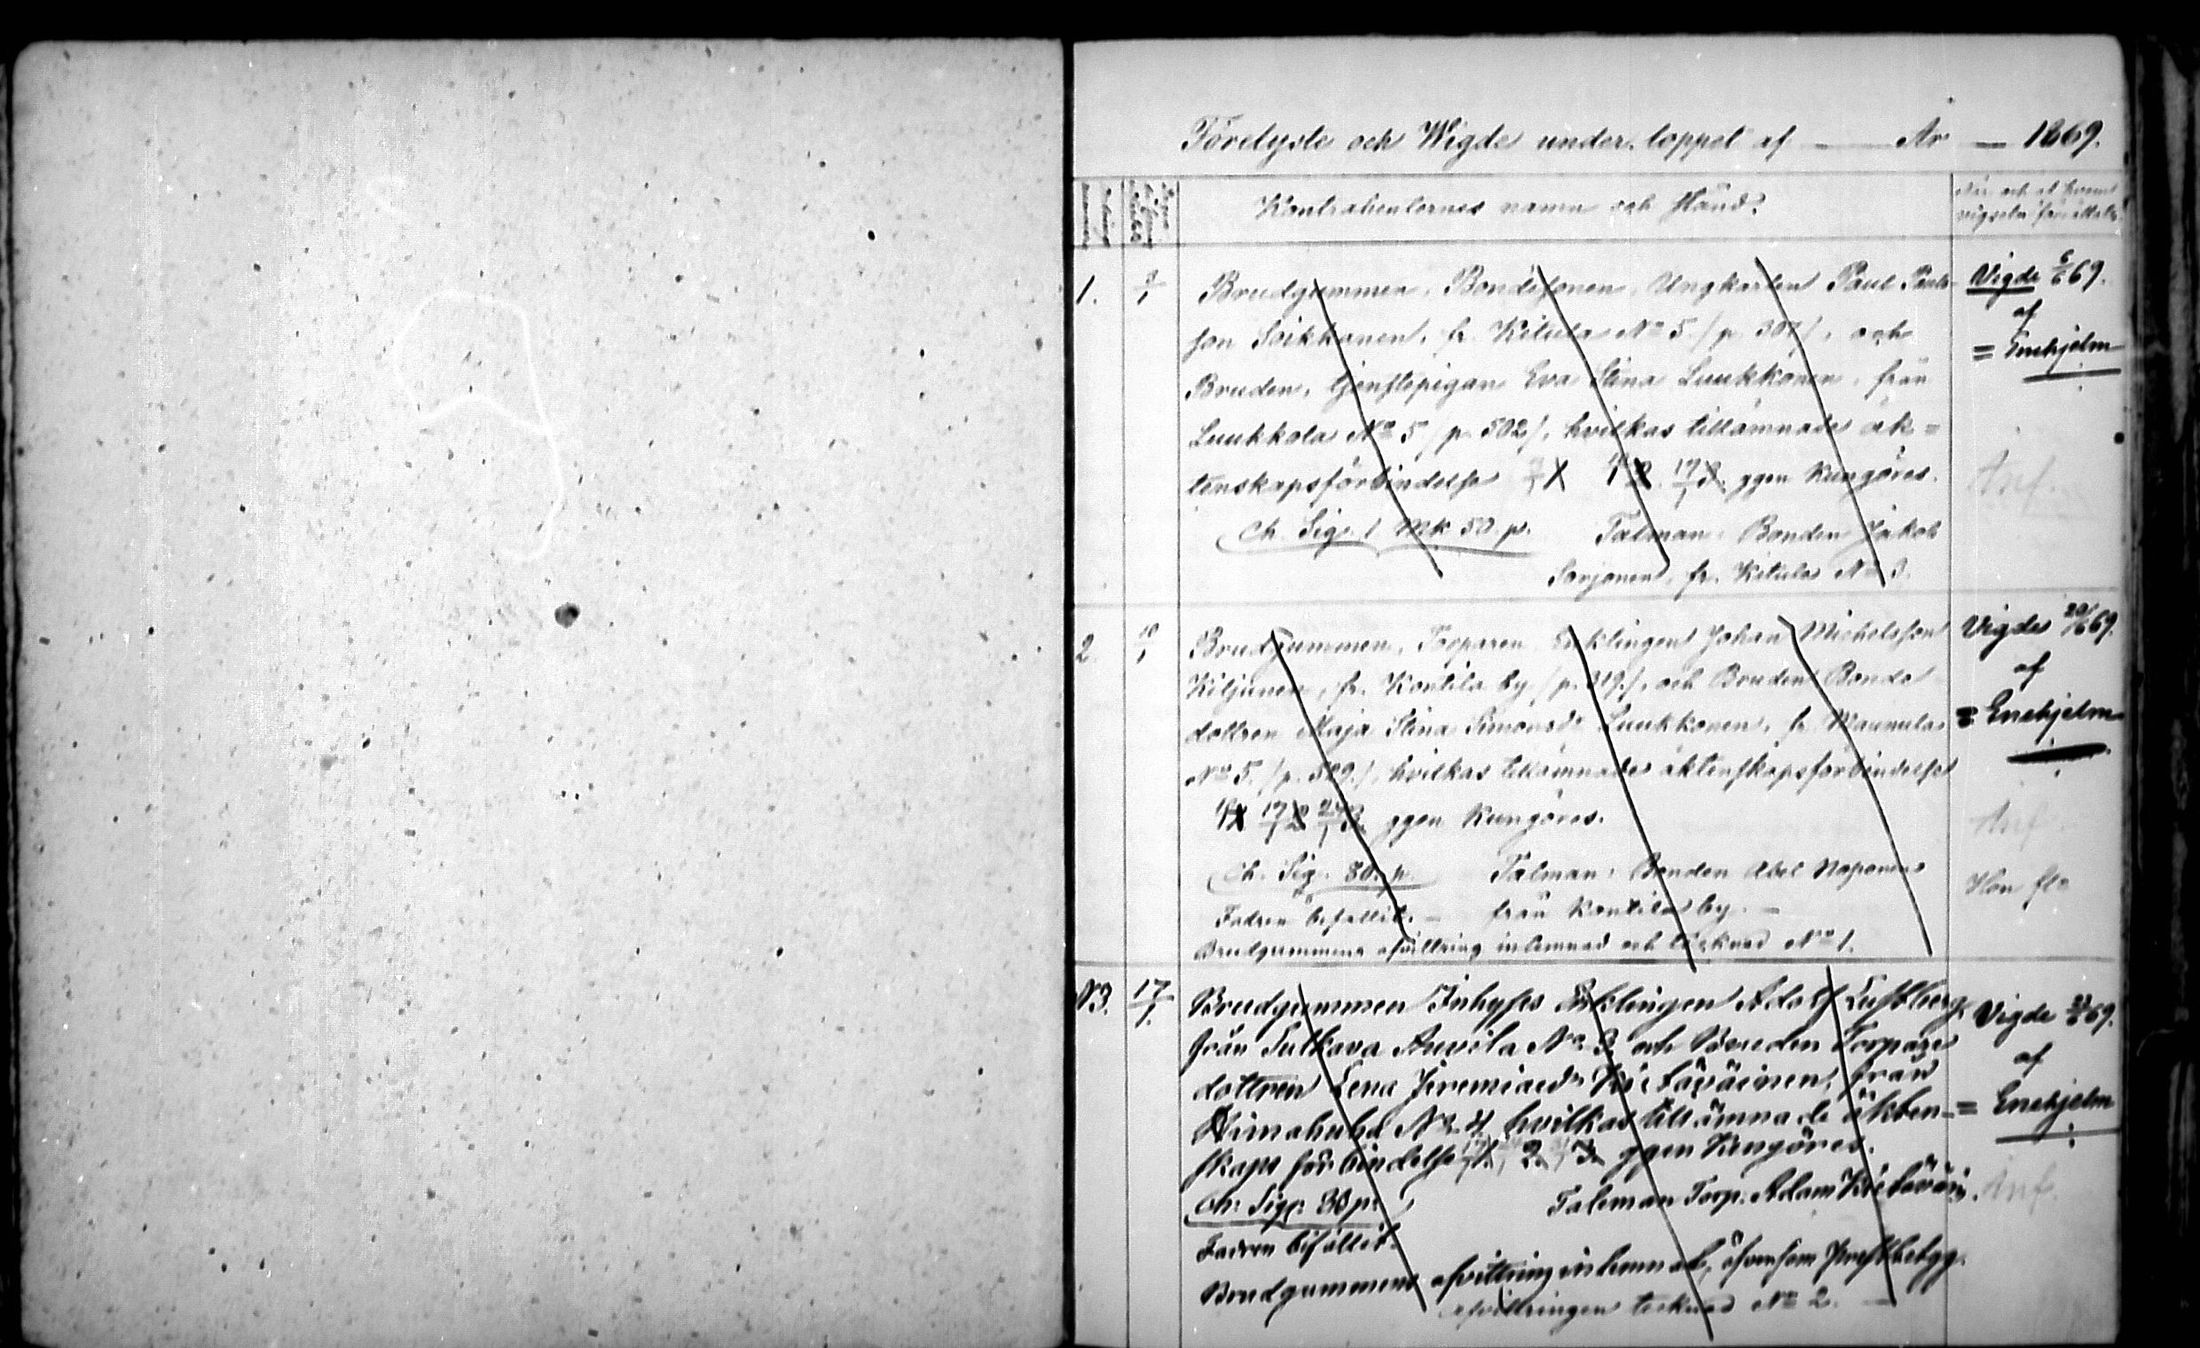 Förelyste och Wigde under loppet af — År — 1869.
Kontrahenternes namn och stånd.
När och af hvem
vigseln förrättats
1.
Brudgummen, Bondesonen, Ungkarlen Paul Pauls-
son Soikkanen, fr. Kitula No 5 /p. 307/, och
Bruden, tjenstepigan Eva Stina Luukkonen, från
Luukkola No 5 /p. 502/, hvilkas tillämnade äk=
tenskapsförbindelse 1 2 17/1 3 ggen kungöres.
Ch. Sig. 1 Mk 50 p. Talman: Bonden Jakob
Sorjonen, fr. Kitula No 3.
Vigde 69.
af
= Enehjelm
Anf.
2. 10/1
Brudgummen, Torparen Enklingen Johan Michelsson
Kiljunen, fr. Kontila by /p. 319./, och Bruden Bonde
dottren Maja Stina Simonsdr Luukkonen, fr. Maunula
No 5. /p. 529./, hvilkas tillämnade äktenskapsförbindelse
1 17/1 2 24/1 3 ggen kungöres.
Ch. Sig. 80. p. Talman: Bonden Abel Naponen
Fadren bifallit. — från Kontila by. —
Brudgummens afvittring inlemnad och tecknad No 1.
Vigde 20/6 69.
af
= Enehjelm
Anf.
N3. 17/1.
Brudgummen Inhyses Enklingen Adolf Lustberg
från Sulkava Auvila No 3. och Bruden Torpare
dottren Lena Jeremiaedr Kietäväinen, från
No 4 hvilkas tillämnade äkten-
skaps förbindelse 1. 2. 3. ggen Kungöres.
Ch: Sig: 30 p: Talman Torp. Adam Kietäväin.
Fadren bifallit.
Brudgummens afvittring inlemnad, äfvensom Prestbetyg.
afvittringen tecknad No 2. —
Vigde 69.
af
= Enehjelm
Anf.